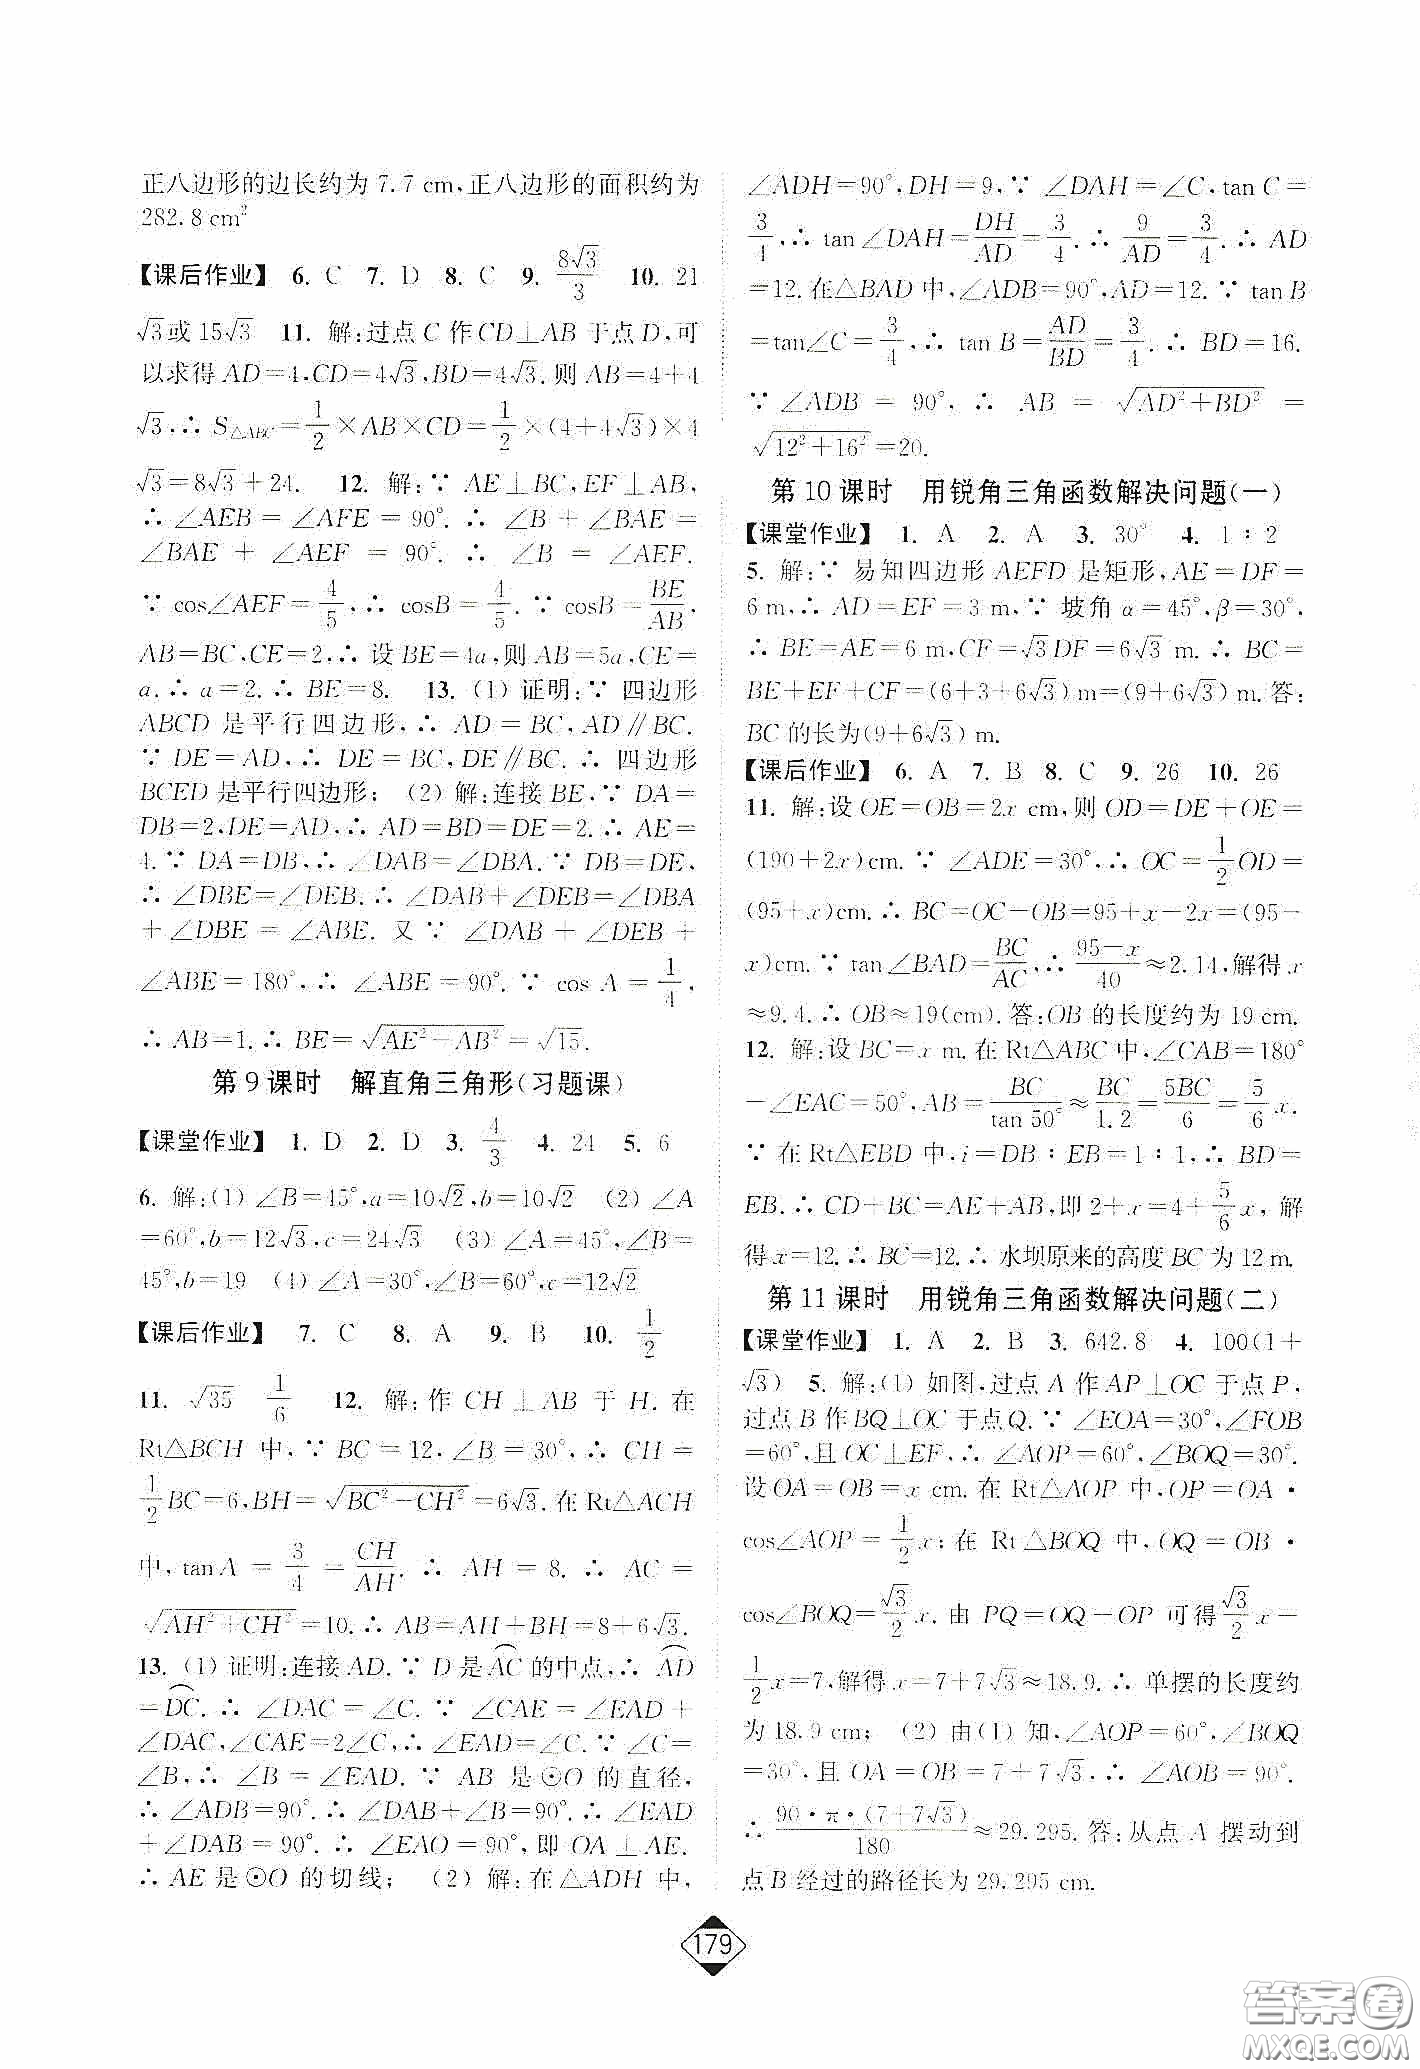 正八边形的边长约为 7.7 cm,正八边形的面积约为
282.8 cm²
【课后作业】 6. C 7. D 8. C 9. 8√3/3 10. 21
√3或15√3 11. 解:过点 C 作CD⊥AB 于点 D,可
以求得 AD=4,CD=4√3,BD=4√3. 则 AB=4+4
√3,∴ S△ABC=1/2×AB×CD=1/2×(4+4√3)×4
√3=8√3+24. 12. 解:∵ AE⊥BC,EF⊥AB,
∴ ∠AEB = ∠AFE = 90°. ∴ ∠B + ∠BAE =
∠BAE + ∠AEF = 90°. ∴ ∠B = ∠AEF.
∵ cos∠AEF=4/5,∴ cosB=4/5. ∵ cosB=BE/AB,
AB=BC,CE=2,∴ 设 BE=4a,则 AB=5a,CE=
a. ∴ a=2. ∴ BE=8. 13. (1) 证明:∵ 四边形
ABCD 是平行四边形,∴ AD=BC,AD∥BC.
∵ DE=AD,∴ DE=BC,DE∥BC. ∴ 四边形
BCED 是平行四边形; (2) 解:连接 BE,∵ DA=
DB=2,DE=AD,∴ AD=BD=DE=2. ∴ AE=
4. ∵ DA=DB,∴ ∠DAB=∠DBA. ∵ DB=DE,
∴ ∠DBE=∠DEB. ∴ ∠DAB+∠DEB=∠DBA
+∠DBE = ∠ABE. 又 ∵ ∠DAB + ∠DEB +
∠ABE=180°,∴ ∠ABE=90°. ∵ cos A=1/4,
∴ AB=1. ∴ BE=√(AE²-AB²)=√15.
第 9 课时 解直角三角形(习题课)
【课堂作业】 1. D 2. D 3. 4/3 4. 24 5. 6
6. 解:(1) ∠B=45°,a=10√2,b=10√2 (2) ∠A
=60°,b=12√3,c=24√3 (3) ∠A=45°,∠B=
45°,b=19 (4) ∠A=30°,∠B=60°,c=12√2
【课后作业】 7. C 8. A 9. B 10. 1/2
11. √35 1/6 12. 解:作 CH⊥AB 于 H. 在
Rt△BCH 中,∵ BC=12,∠B=30°,∴ CH=
1/2BC=6,BH=√(BC²-CH²)=6√3. 在 Rt△ACH
中,tanA = 3/4 = CH/AH. ∴ AH = 8. ∴ AC =
√(AH²+CH²)=10. ∴ AB=AH+BH=8+6√3.
13. (1) 证明:连接 AD. ∵ D 是 AC⌒ 的中点,∴ AD⌒
=DC⌒. ∴ ∠DAC=∠C. ∵ ∠CAE=∠EAD+
∠DAC,∠CAE=2∠C,∴ ∠EAD=∠C. ∵ ∠C=
∠B,∴ ∠B=∠EAD. ∵ AB 是⊙O 的直径,
∴ ∠ADB=90°. ∴ ∠DAB+∠B=90°. ∴ ∠EAD
+∠DAB=90°. ∴ ∠EAO=90°,即 OA⊥AE.
∴ AE 是⊙O 的切线; (2) 解:在△ADH 中,
∠ADH=90°,DH=9,∵ ∠DAH=∠C,tan C=
3/4,∴ tan∠DAH=DH/AD=3/4. ∴ 9/AD=3/4. ∴ AD
=12. 在△BAD 中,∠ADB=90°,AD=12. ∵ tan B
=tan∠C=3/4,∴ tan B=AD/BD=3/4. ∴ BD=16.
∵ ∠ADB = 90°, ∴ AB = √(AD²+BD²) =
√(12²+16²)=20.
第 10 课时 用锐角三角函数解决问题(一)
【课堂作业】 1. A 2. A 3. 30° 4. 1∶2
5. 解:∵ 易知四边形 AEFD 是矩形,AE=DF=
6 m,∴ AD=EF=3 m,∵ 坡角 α=45°,β=30°,
∴ BE=AE=6 m,CF=√3DF=6√3 m. ∴ BC=
BE+EF+CF=(6+3+6√3)m=(9+6√3) m. 答:
BC 的长为(9+6√3) m.
【课后作业】 6. A 7. B 8. C 9. 26 10. 26
11. 解:设 OE=OB=2x cm,则 OD=DE+OE=
(190+2x)cm. ∵ ∠ADE=30°,∴ OC=1/2OD=
(95+x)cm. ∴ BC=OC-OB=95+x-2x=(95-
x)cm. ∵ tan∠BAD=BC/AC,∴ (95-x)/40≈2.14,解得 x
≈9.4. ∴ OB≈19(cm). 答:OB 的长度约为 19 cm.
12. 解:设 BC=x m. 在 Rt△ABC 中,∠CAB=180°
-∠EAC=50°,AB=BC/tan 50°≈BC/1.2=5BC/6=5/6x.
∵ 在 Rt△EBD 中,i=DB∶EB=1∶1,∴ BD=
EB. ∴ CD+BC=AE+AB,即 2+x=4+5/6x,解
得 x=12. ∴ BC=12. ∴ 水坝原来的高度 BC 为 12 m.
第 11 课时 用锐角三角函数解决问题(二)
【课堂作业】 1. A 2. B 3. 642.8 4. 100(1+
√3) 5. 解:(1) 如图,过点 A 作 AP⊥OC 于点 P,
过点 B 作 BQ⊥OC 于点 Q. ∵ ∠EOA=30°,∠FOB
=60°,且 OC⊥EF,∴ ∠AOP=60°,∠BOQ=30°.
设 OA=OB=x cm. 在 Rt△AOP 中,OP=OA·
cos∠AOP=1/2x;在 Rt△BOQ 中,OQ=OB·
cos∠BOQ=√3/2x. 由 PQ=OQ-OP 可得√3/2x-
1/2x=7,解得 x=7+7√3≈18.9. ∴ 单摆的长度约
为 18.9 cm; (2) 由(1) 知,∠AOP=60°,∠BOQ
=30°,且 OA=OB=7+7√3,∴ ∠AOB=90°.
∴ 90·π·(7+7√3)/180≈29.295. 答:从点 A 摆动到
点 B 经过的路径长为 29.295 cm.
179
答案圈
MXQE.COM